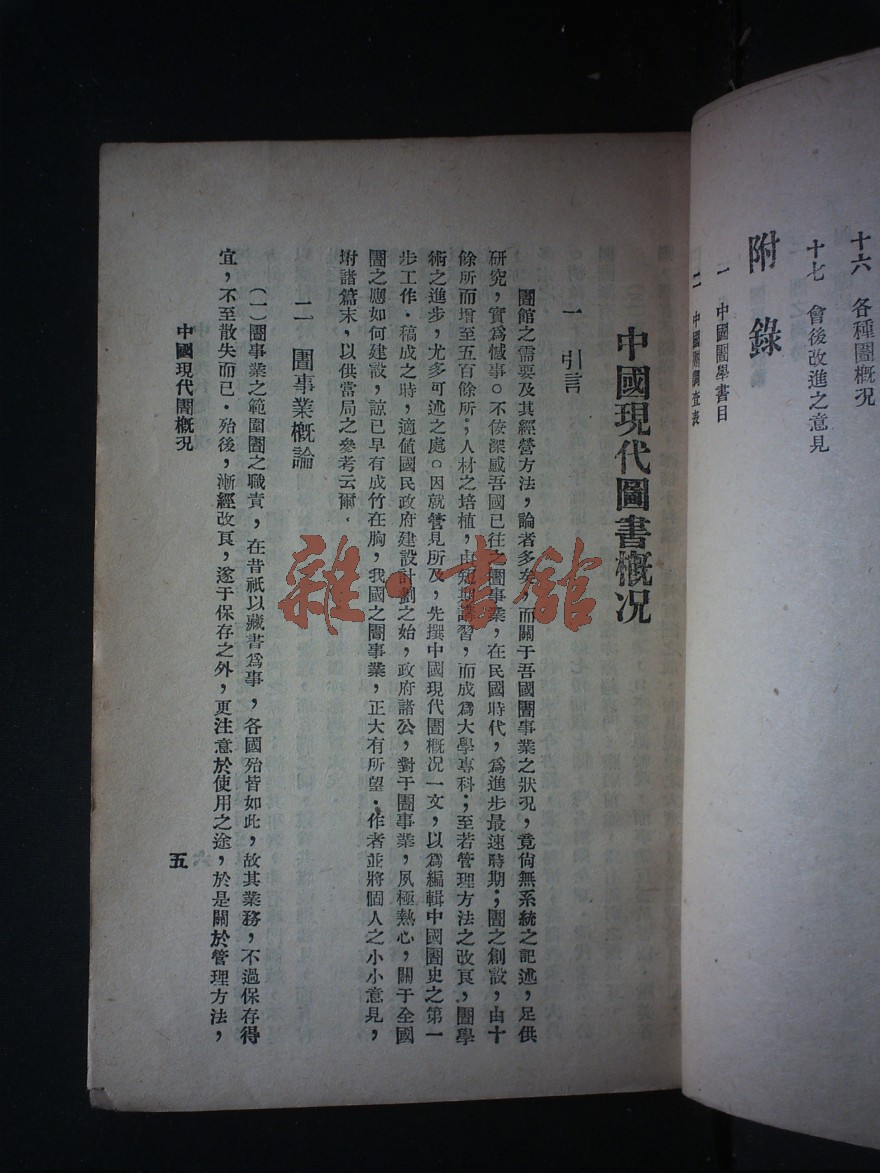 十六 各種圕概況
十七 會後改進之意見
附錄
一 中國圕學書目
二 中國圕調查表
中國現代圖書概况
一 引言
圕館之需要及其經營方法，論者多矣，而關于吾國圕事業之狀況，竟尙無系統之記述，足供
研究，實爲憾事。不佞深感吾國已往之圕事業，在民國時代，爲進步最速時期；圕之創設，由十
餘所而增至五百餘所；人材之培植，由短期講習，而成爲大學專科；至若管理方法之改良，圕學
術之進步，尤多可述之處。因就管見所及，先撰中國現代圕槪况一文，以爲編輯中國圕史之第一
步工作．稿成之時，適値國民政府建設計劃之始，政府諸公，對于圕事業，夙極熱心，關于全國
圕之應如何建設，諒已早有成竹在胸，我國之圕事業，正大有所望．作者並將個人之小小意見，
坿諸篇末，以供當局之參考云爾．
二 圕事業槪論
（一）圕事業之範圍圕之職責，在昔祇以藏書爲事，各國殆皆如此，故其業務，不過保存得
宜，不至散失而已．殆後，漸經改良，遂于保存之外，更注意於使用之途，於是關於管理方法，
中國現代圕槪况
五
雜·書館